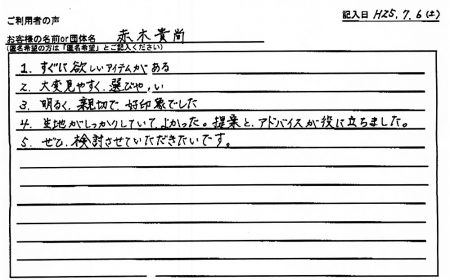 ご利用者の声
記入日 H25.7.6(土)
お客様の名前or団体名 赤木貴尚
(匿名希望の方は「匿名希望」とご記入ください)
1. すぐに欲しいアイテムがある
2. 大変見やすく、選びやすい
3. 明るく、親切で、好印象でした
4. 生地がしっかりしていて、よかった。提案と、アドバイスが役に立ちました。
5. ぜひ、検討させていただきたいです。